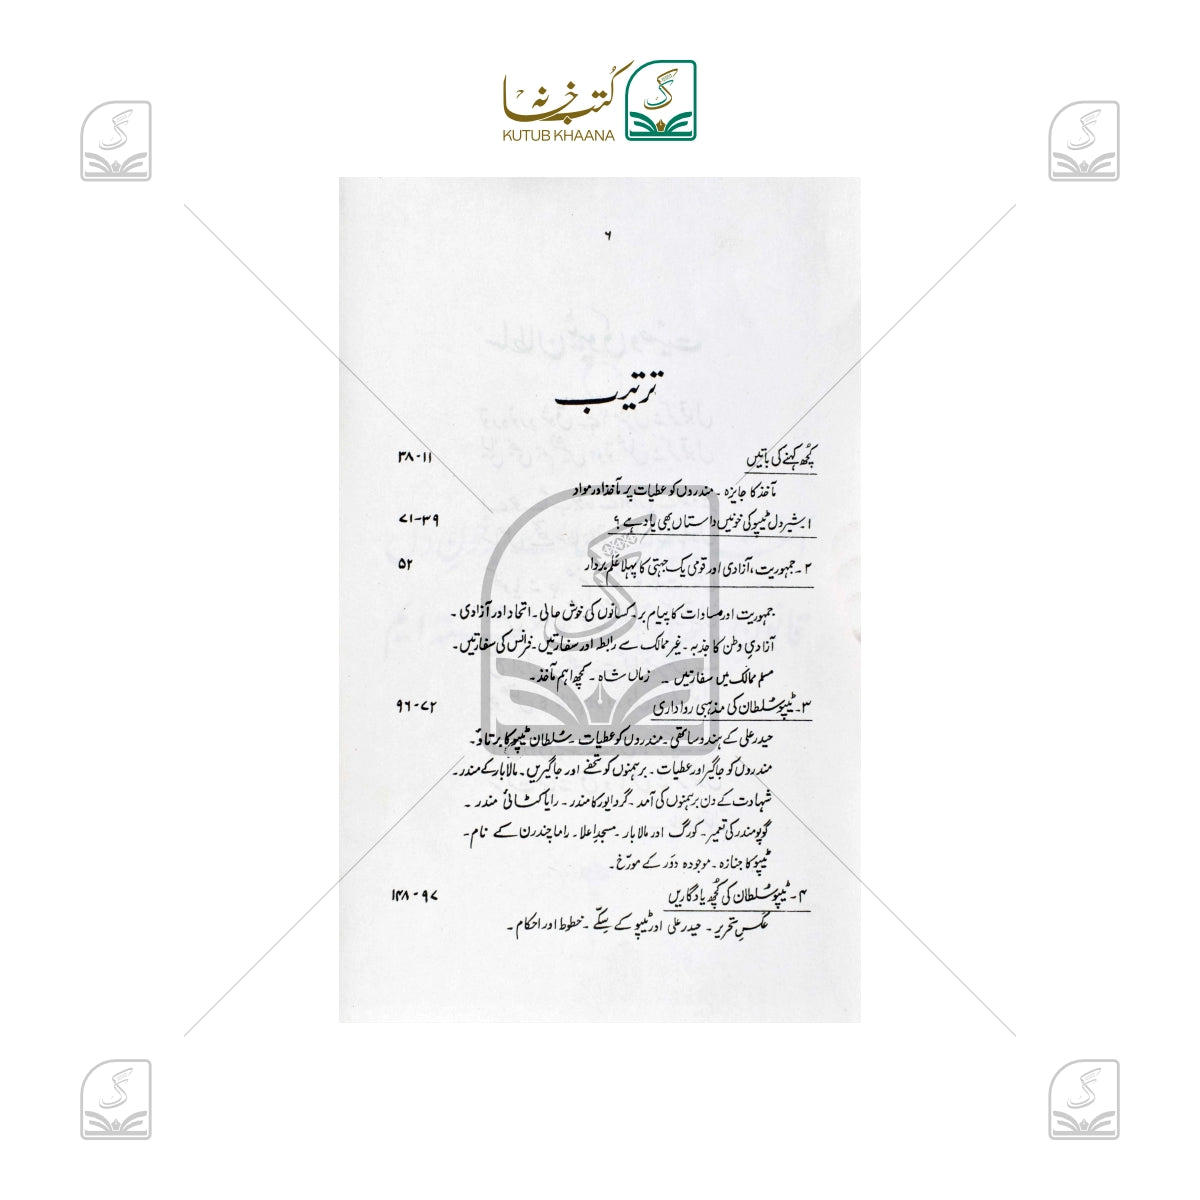 کتب خانہ
KUTUB KHAANA
۶
ترتیب
کچھ کہنے کی باتیں ۱۱-۳۸
مآخذ کا جایزہ ۔ مندروں کو عطیات پر مآخذ اور مواد
۱۔ شیر دل ٹیپو کی خونیں داستاں بھی یاد ہے ؟ ۳۹-۷۱
۲۔ جمہوریت، آزادی اور قومی یک جہتی کا پہلا علَم بردار ۵۲
جمہوریت اور مساوات کا پیام بر۔ کسانوں کی خوش حالی ۔ اتحاد اور آزادی ۔
آزادیِ وطن کا جذبہ ۔ غیر ممالک سے رابطہ اور سفارتیں ۔ فرانس کی سفارتیں ۔
مسلم ممالک میں سفارتیں ۔ زماں شاہ ۔ کچھ اہم مآخذ ۔
۳۔ ٹیپو سُلطان کی مذہبی رواداری ۷۲-۹۶
حیدر علی کے ہندو ساتھی ۔ مندروں کو عطیات ۔ سُلطان ٹیپو کا برتاؤ ۔
مندروں کو جاگیر اور عطیات ۔ برہمنوں کو تحفے اور جاگیریں ۔ مالابار کے مندر ۔
شہادت کے دن برہمنوں کی آمد ۔ گردایور کا مندر ۔ رایا کٹائی مندر ۔
گوپو مندر کی تعمیر ۔ کورگ اور مالابار ۔ مسجدِ اعلا ۔ راماچندرن کے نام ۔
ٹیپو کا جنازہ ۔ موجودہ دَور کے مورّخ ۔
۴۔ ٹیپو سُلطان کی کُچھ یادگاریں ۹۷-۱۴۸
عکسِ تحریر ۔ حیدر علی اور ٹیپو کے سِکّے ۔ خطوط اور احکام ۔